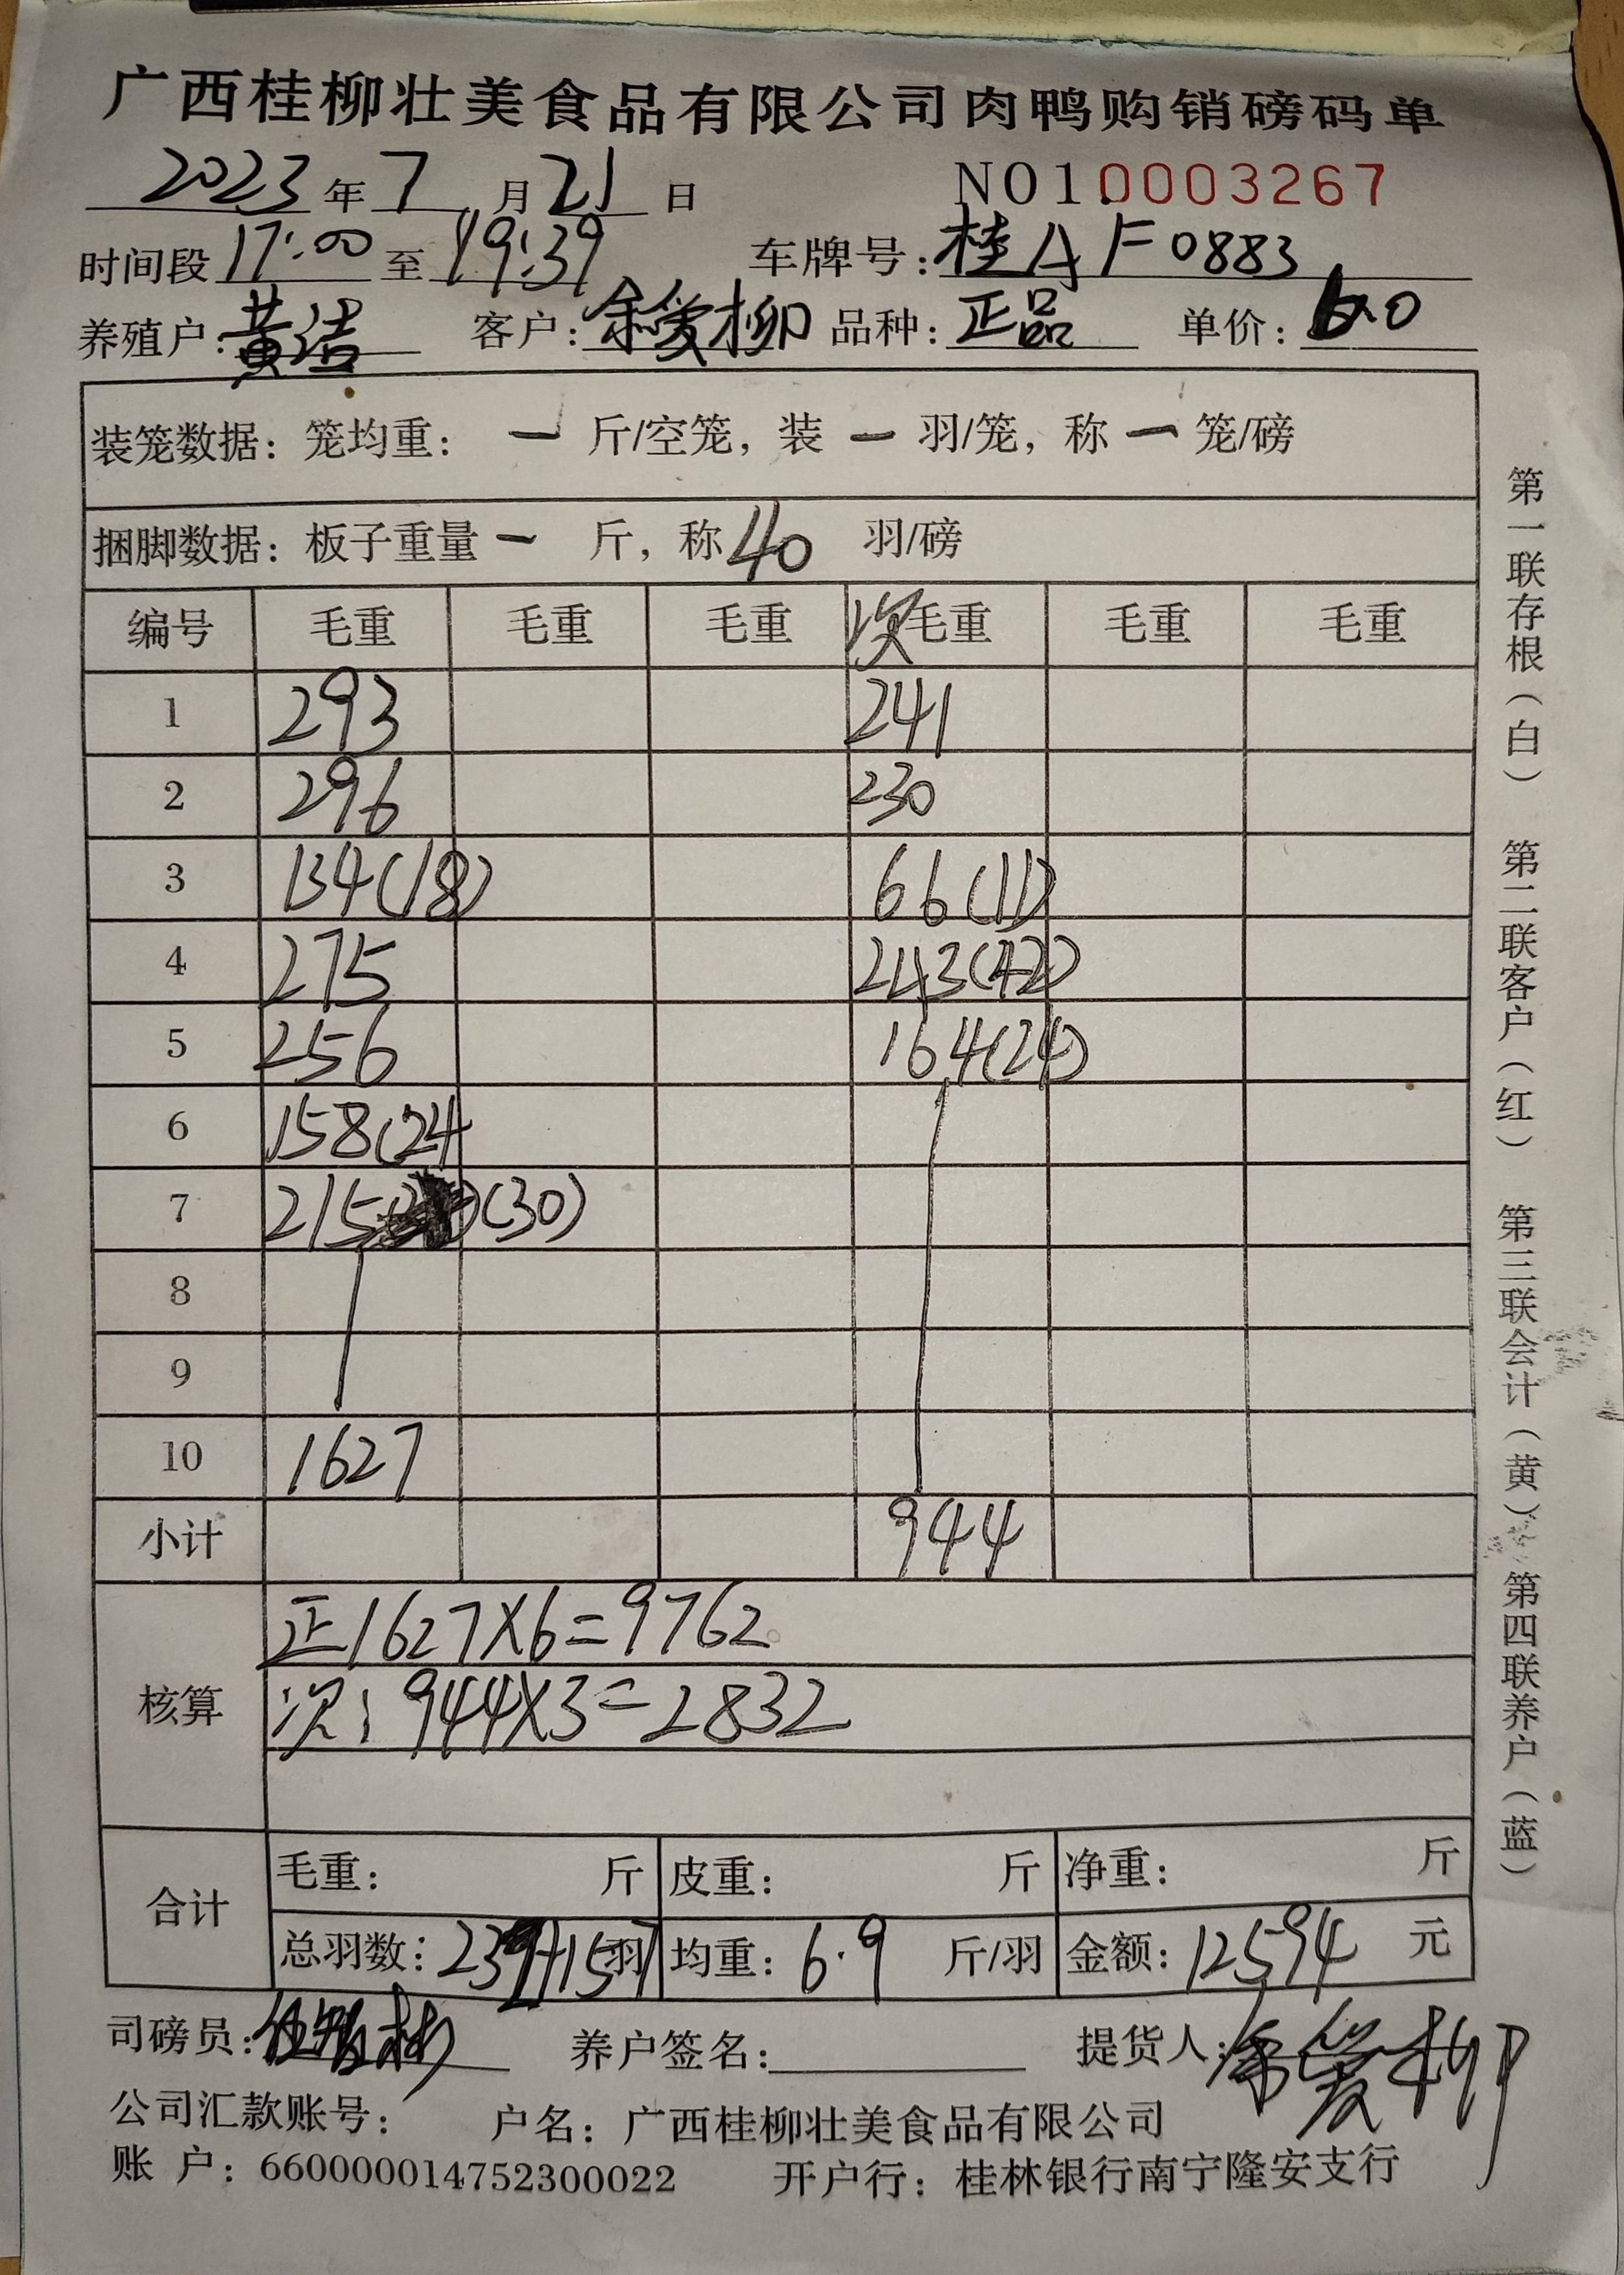 广西桂柳壮美食品有限公司肉鸭购销磅码单
2023年7月21日 NO10003267
时间段17:00至19:39 车牌号:桂AF0883
养殖户:黄洁 客户:余爱柳 品种:正品 单价:6.0
装笼数据:笼均重: — 斤/空笼,装 — 羽/笼,称 — 笼/磅
捆脚数据:板子重量 — 斤,称40 羽/磅
编号 毛重 毛重 毛重 次毛重 毛重 毛重
1 293 241
2 296 230
3 134(18) 66(11)
4 275 243(42)
5 256 164(24)
6 158(24
7 215 (30)
8
9
10 1627
小计 944
核算
正1627X6=9762
次:944X3=2832
合计
毛重: 斤 皮重: 斤 净重: 斤
总羽数:239+157羽 均重:6.9 斤/羽 金额:12594 元
司磅员: 养户签名: 提货人:余爱柳
公司汇款账号: 户名:广西桂柳壮美食品有限公司
账 户:660000014752300022 开户行:桂林银行南宁隆安支行
第一联存根(白) 第二联客户(红) 第三联会计(黄) 第四联养户(蓝)